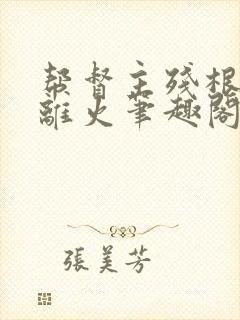 帮督主残根
離火筆趣閣
張美芳